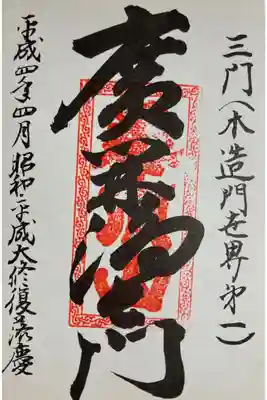 三門（木造門世界第一）
廣 門
平成四年四月 昭和平成大修復落慶